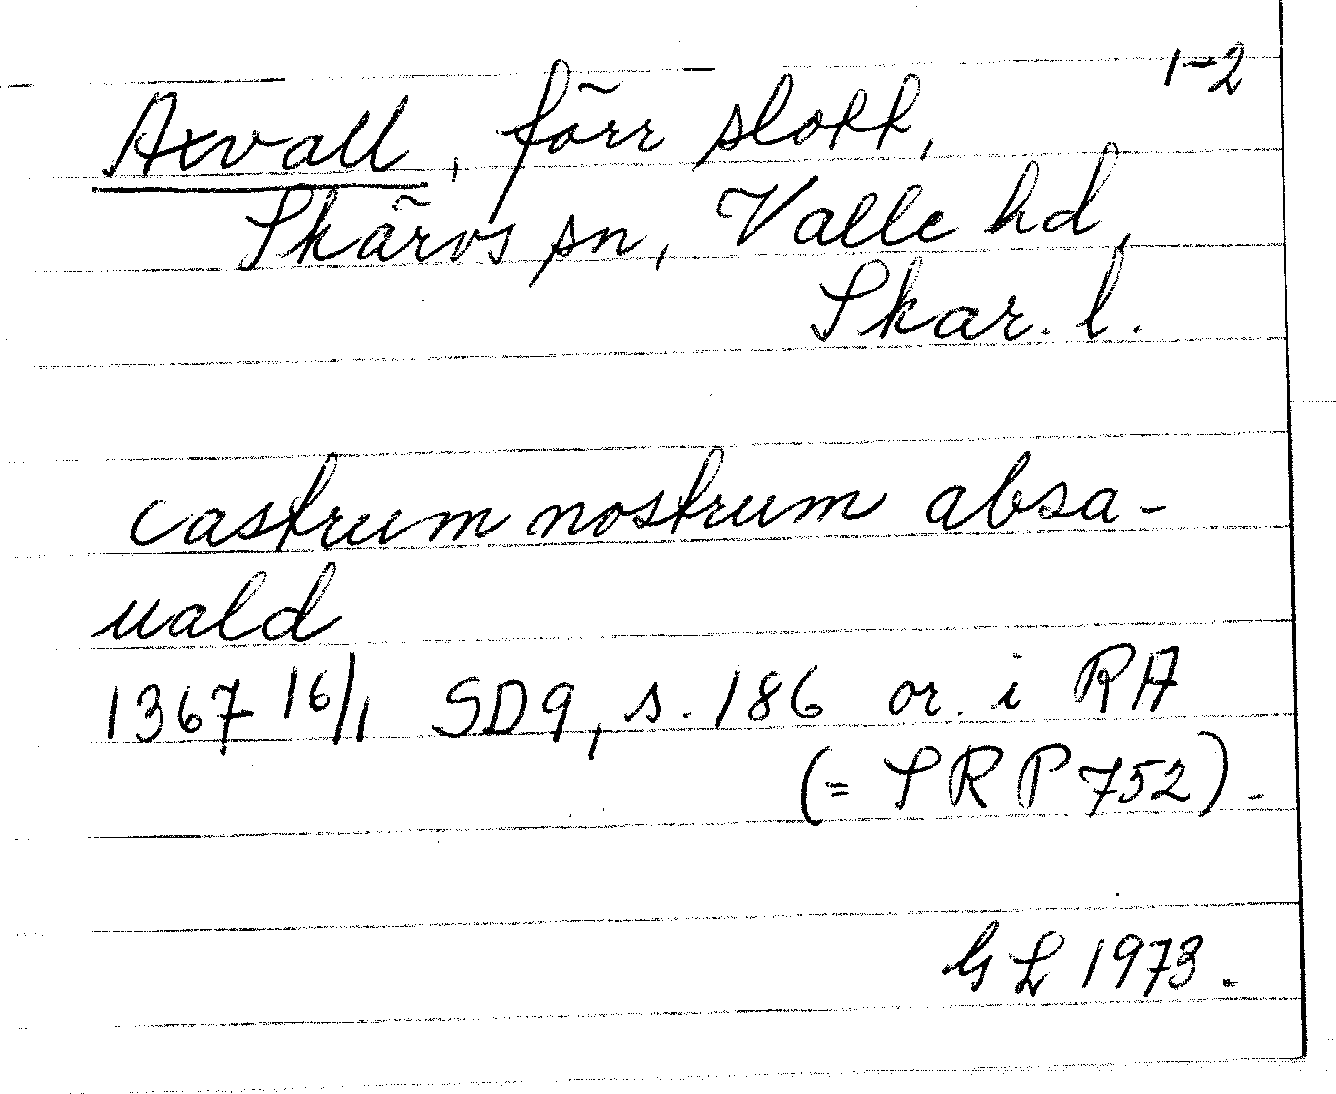 1-2
Axvall, förr slott,
Skärvs sn, Valle hd,
Skar. l.
castrum nostrum absa-
uald
1367 16/1 SD9, s. 186 or. i RA
(= SRP 752).
GL 1973.